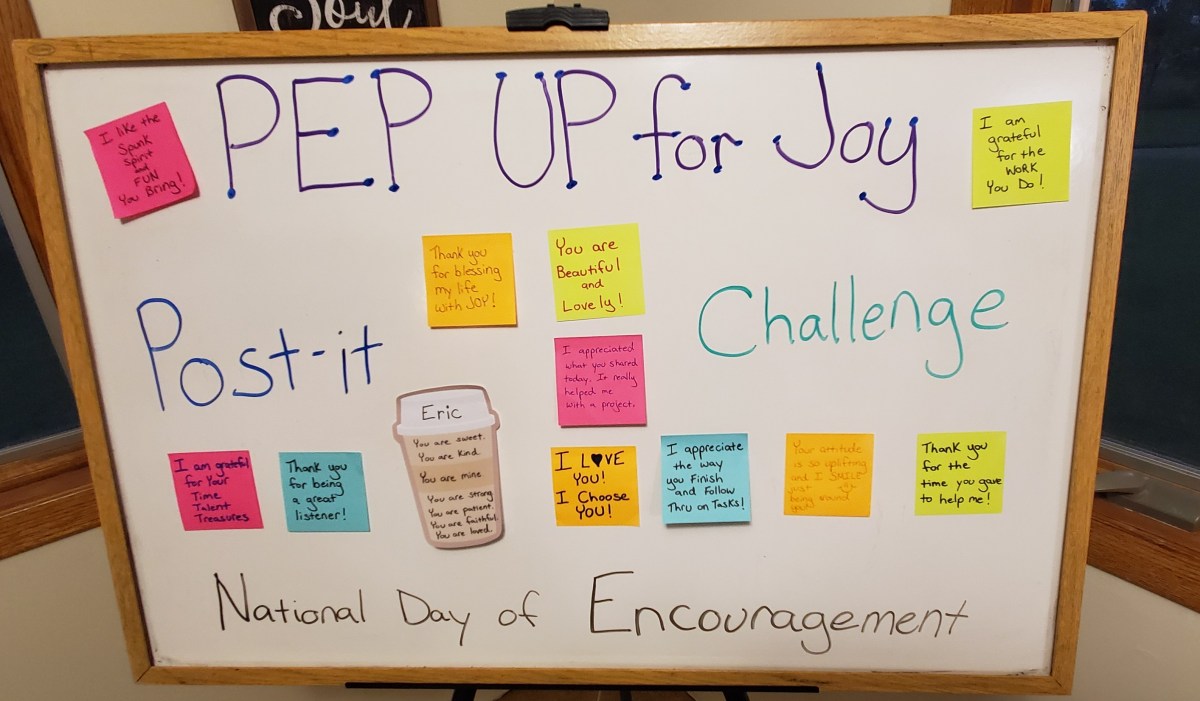 Soul
PEP UP for Joy
I like the
Spunk
Spirit
and
FUN
You Bring!
I am
grateful
for the
WORK
You Do!
Thank you
for blessing
my life
with JOY!
You are
Beautiful
and
Lovely!
Post-it
Challenge
I appreciated
what you shared
today. It really
helped me
with a project.
Eric
You are sweet.
You are kind.
You are mine
You are strong
You are patient.
You are faithful.
You are loved.
I am grateful
for Your
Time
Talent
Treasures
Thank you
for being
a great
listener!
I L♥VE
You!
I Choose
You!
I appreciate
the way
you Finish
and Follow
Thru on Tasks!
Your attitude
is so uplifting
and I SMILE
just
being around
you!
Thank you
for the
time you gave
to help me!
National Day of Encouragement